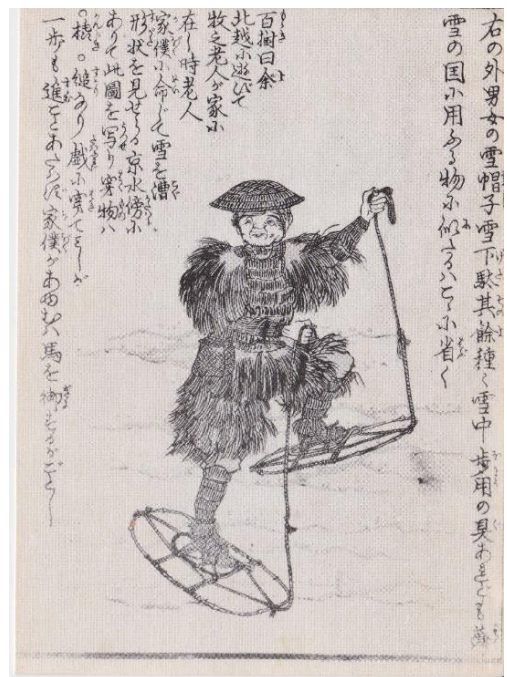 右の外男女の雪帽子雪下駄其餘種々雪中歩用の具あれども薄
雪の国に用ふる物に似たるはこゝに省く
百樹曰余
北越に遊びて
牧之老人が家に
在し時老人
家僕に命じて雪を漕
形状を見せらる京水傍に
ありて此圖を写り穿物は
。橇。縋なり戯に穿てみしが
一歩も進ことあたはず家僕があゆむは馬を御するがごとし